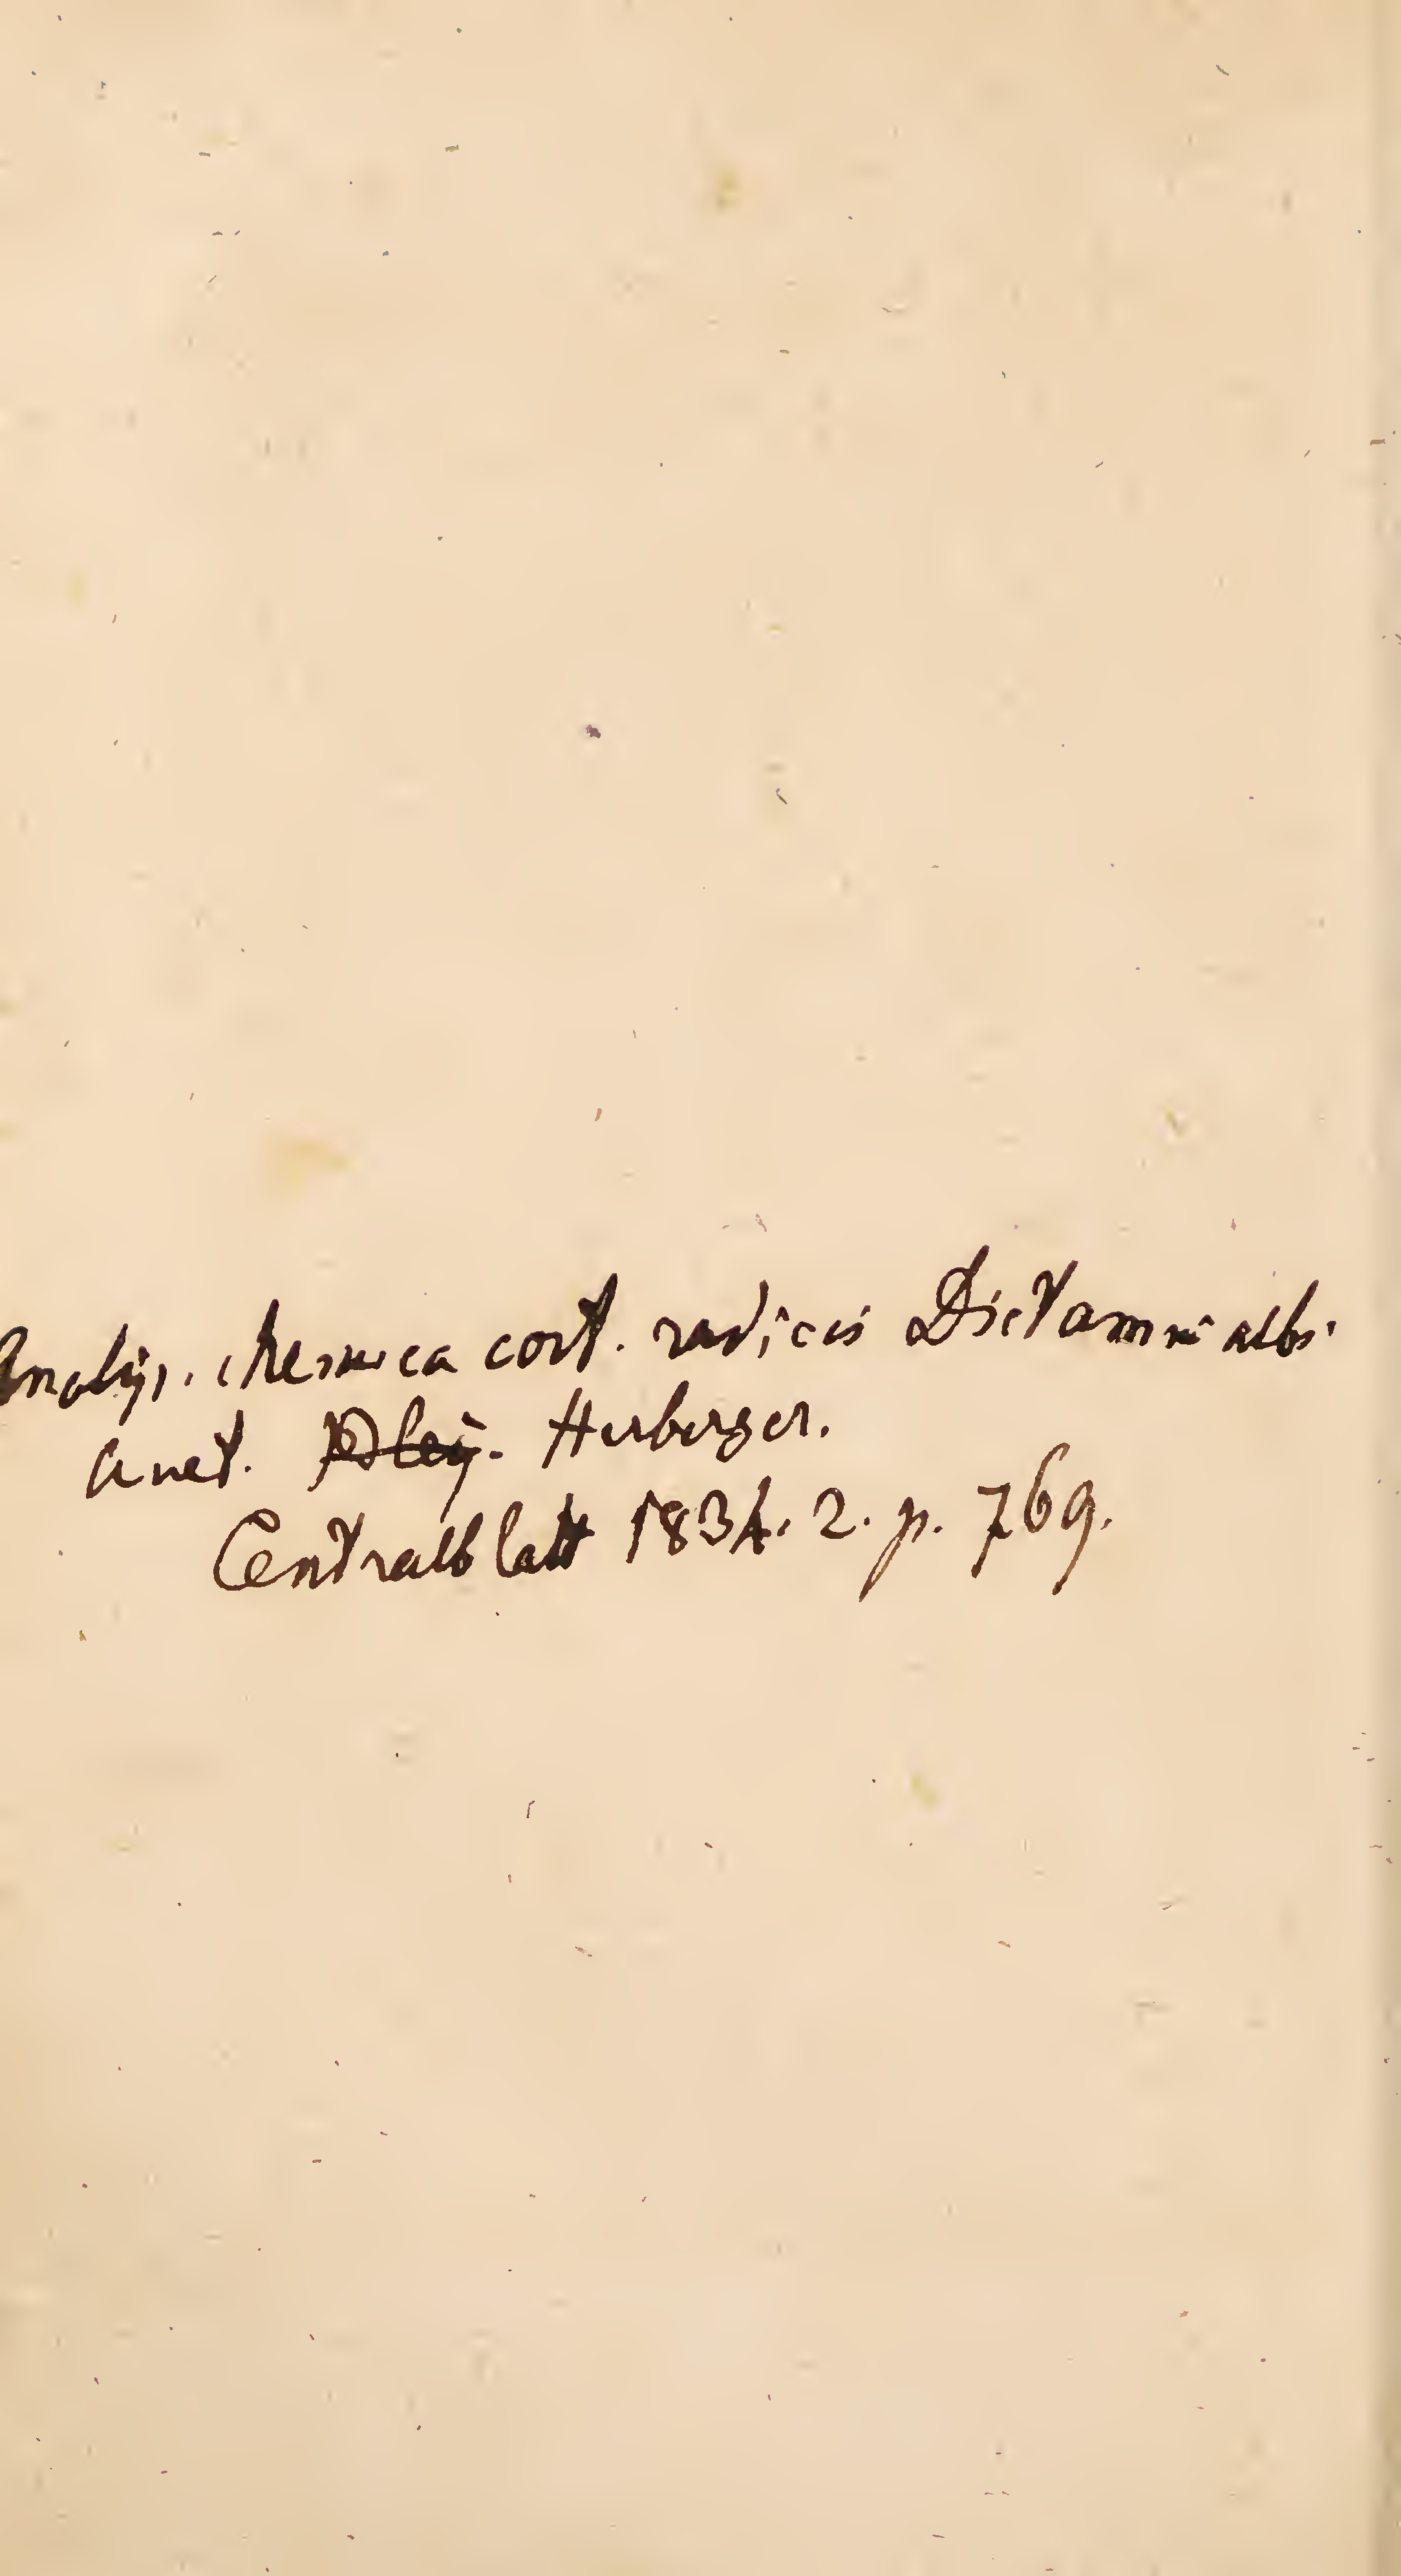 Analys. chemica cort. radicis Dictamni albi.
auct. Bley. Herberger.
Centralblatt 1834. 2. p. 769.